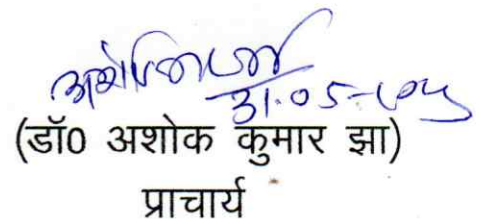 31.05-
(डॉ0 अशोक कुमार झा)
प्राचार्य